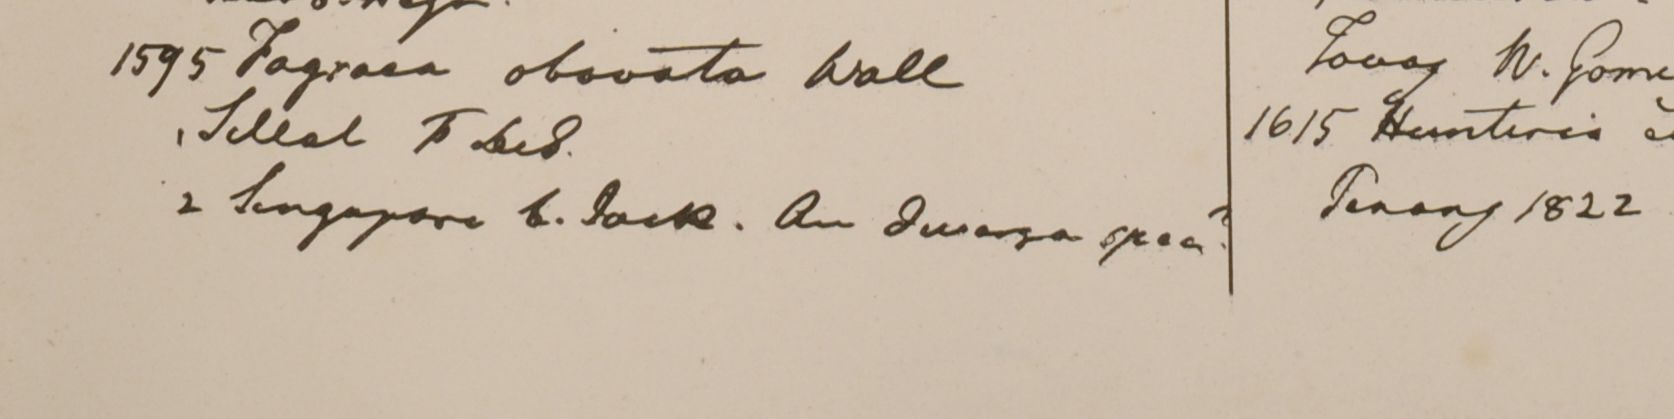 1595 Fagraea obovata Wall
1 Sillet F De S.
2 Singapore G. Jack. An diversa spec?
Tavoy W. Gome
1615 Hunteria
Penang 1822